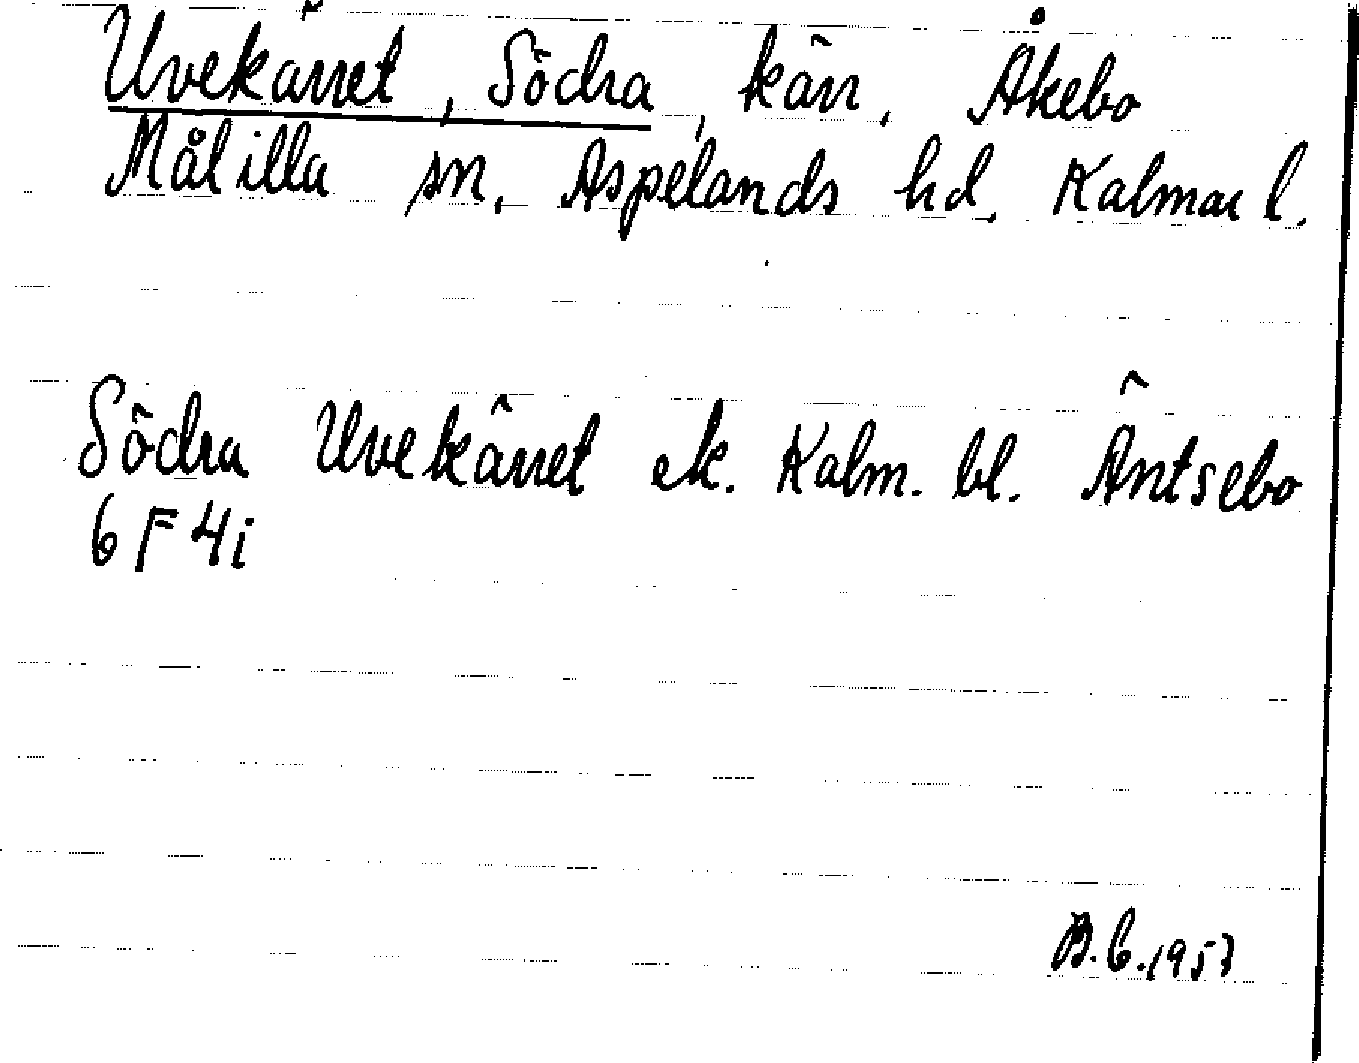 Uvekärret, Södra, kärr, Åkebo
Målilla sn, Aspelands hd, Kalmar l.
Södra Uvekärret ek. Kalm. bl. Äntsebo
6 F 4i
B.C.1957